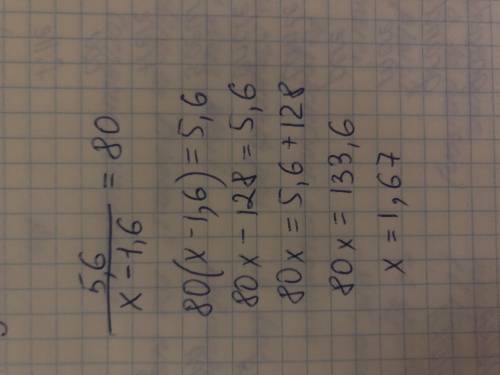 5,6
x - 1,6 = 80
80(x - 1,6) = 5,6
80x - 128 = 5,6
80x = 5,6 + 128
80x = 133,6
x = 1,67